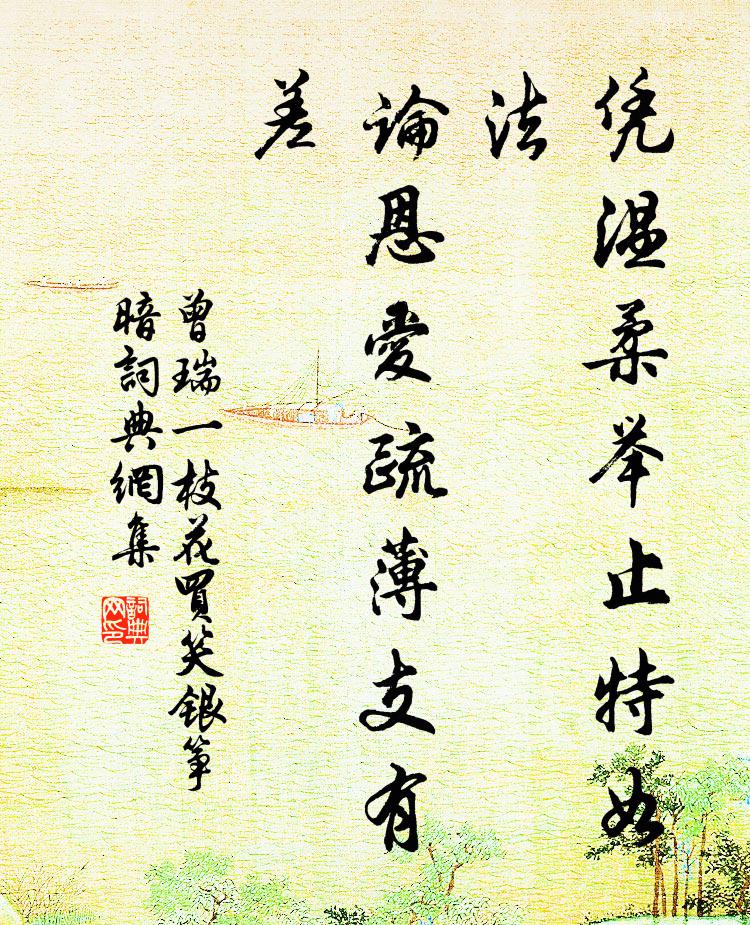 凭温柔举止特如
法
論恩愛疏薄支有
差
曾瑞一枝花買笑銀筝
暗詞典網集
詞典
网印